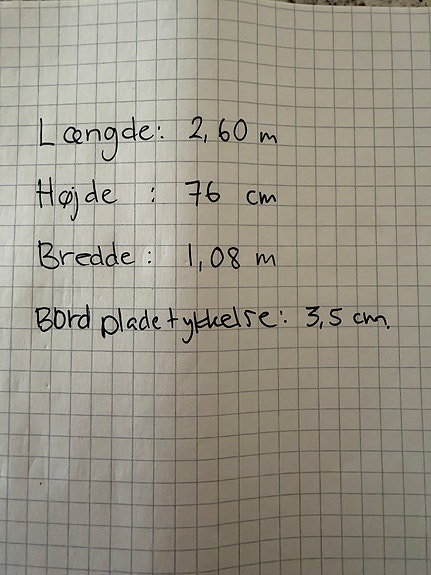 Længde: 2,60 m
Højde : 76 cm
Bredde: 1,08 m
Bord pladetykkelse: 3,5 cm.